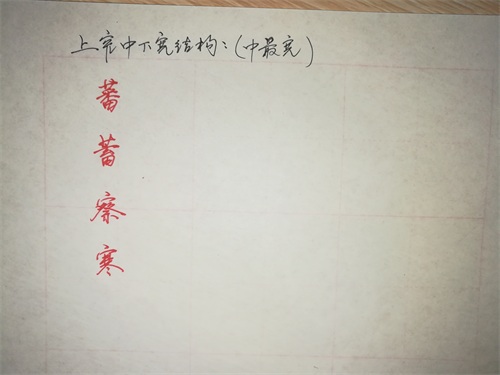 上窄中下宽结构:(中最宽)
蕃
蓄
察
寒